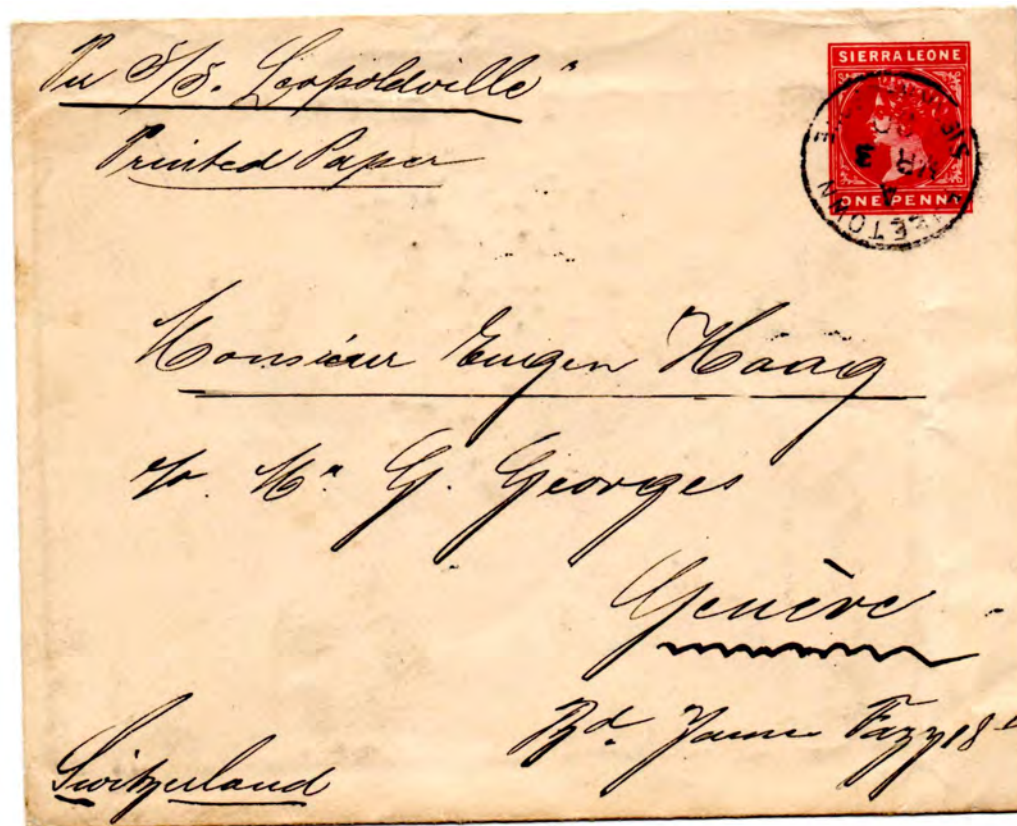 Per S/S. Leopoldville"
Printed Paper
SIERRA LEONE
ONE PENNY
FREETOWN
A
MR 3
Monsieur Eugen Haag
c/o. Mr G. Georges
Genève
Bd. James Fazy 18
Switzerland